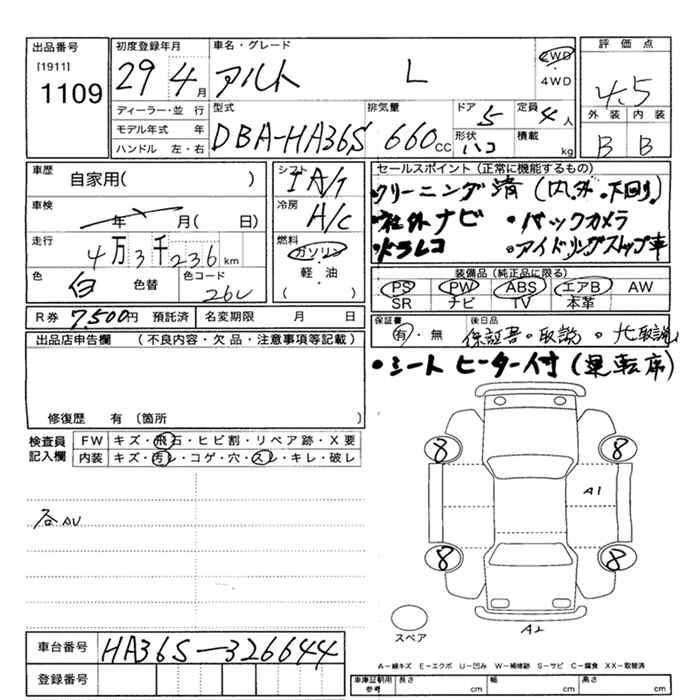 出品番号
[1911]
1109
初度登録年月
29 4月
車名・グレード
アルト L
2WD
・
4WD
評価点
4.5
外装 内装
B B
ディーラー・並 行
モデル年式 年
ハンドル 左・右
型式
DBA-HA36S
排気量
660cc
ドア
5
定員
4人
形状
ハコ
積載
kg
車歴
自家用( )
車検
年 月( 日)
走行
4万3千236km
色
白
色替
色コード
26U
シフト
IA/T
冷房
A/C
燃料
ガソリン
・
軽 油
( )
セールスポイント (正常に機能するもの)
・クリーニング済(内.外.下回り)
・社外ナビ ・バックカメラ
・ドラレコ ・アイドリングストップ車
装備品 (純正品に限る)
PS PW ABS エアB AW
SR ナビ TV 本革
R券 7,500円 預託済
名変期限 月 日
保証書
有・無
後日品
保証書・取説・ナビ取説
・シートヒーター付(運転席)
出品店申告欄 (不良内容・欠品・注意事項等記載)
修復歴 有 〔箇所 〕
検査員
記入欄
FW キズ・飛石・ヒビ割・リペア跡・X要
内装 キズ・汚レ・コゲ・穴・スレ・キレ・破レ
各AU
8 8
A1
8 8
スペア
A2
A-線キズ E-エクボ U-凹み W-補修跡 S-サビ C-腐食 XX-取替済
車台番号 HA36S-326644
登録番号
車庫証明用
参考
長さ cm
幅 cm
高さ cm